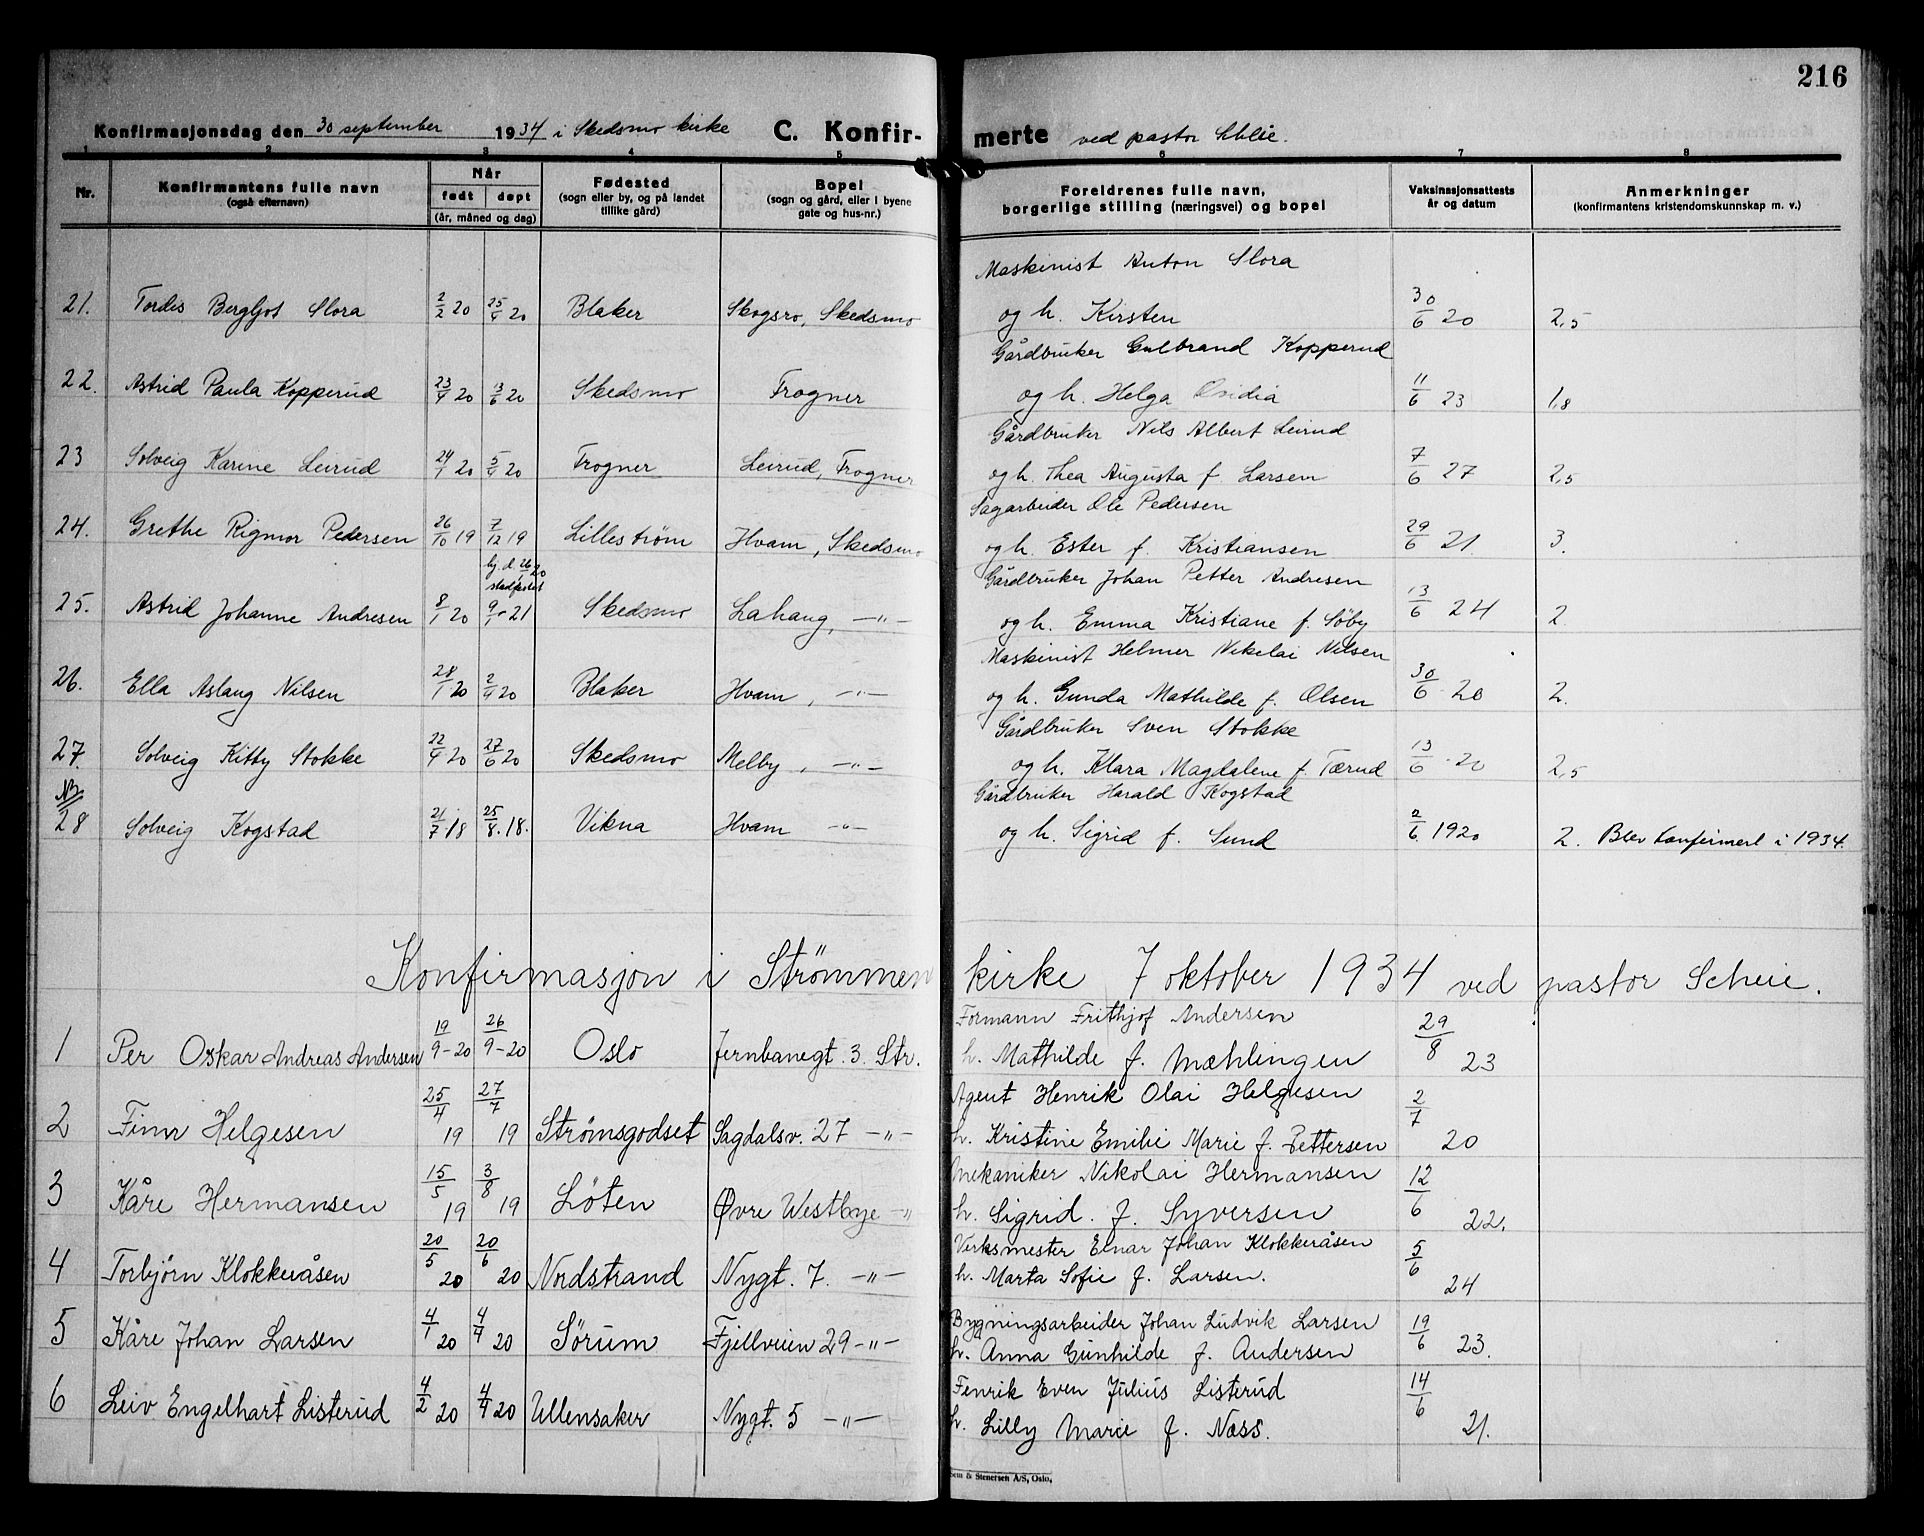 216
Konfirmasjonsdag den 30 september 1934 i Skedsmo kirke C. Konfir- merte ved pastor
1 2 3 4 5 6 7 8
Nr. Konfirmantens fulle navn (også efternavn) Når født døpt (år, måned og dag) Fødested (sogn eller by, og på landet tillike gård) Bopel (sogn og gård, eller i byene gate og hus-nr.) Foreldrenes fulle navn, borgerlige stilling (næringsvei) og bopel Vaksinasjonsattests år og datum Anmerkninger (konfirmantens kristendomskunnskap m. v.)
Maskinist Anton Slora
21. Tordis Bergljot Slora 2/2 20 25/4 20 Blaker Skogsro, Skedsmo og h. Kirsten 30/6 20 2,5
Gårdbruker Gulbrand Kopperud
22. Astrid Paula Kopperud 23/4 20 13/6 20 Skedsmo Frogner og h. Helga Ovidia 11/6 23 1,8
Gårdbruker Nils Albert Leirud
23 Solveig Karine Leirud 24/1 20 5/4 20 Frogner Leirud, Frogner og h. Thea Augusta f. Larsen 7/6 27 2,5
Sagarbeider Ole Pedersen
24. Grethe Rigmor Pedersen 26/10 19 7/12 19 Lillestrøm Hvam, Skedsmo og h. Ester f. Kristiansen 29/6 21. 3.
hj. d. 26/1 20 stadfestet
Gårdbruker Johan Petter Andresen
25. Astrid Johanne Andresen 8/1 20 9/1 - 21 Skedsmo Lahaug, -"- og h. Emma Kristiane f. Søby 13/6 24 2.
Maskinist Helmer Nikolai Nilsen
26. Ella Aslaug Nilsen 28/1 20 2/4 20 Blaker Hvam, -"- og h. Gunda Mathilde f. Olsen 30/6 20 2.
Gårdbruker Sven Stokke
27. Solveig Kitty Stokke 22/4 20 27/6 20 Skedsmo Melby, -"- og h. Klara Magdalene f. Tærud 13/6 20 2,5
NB
Gårdbruker Harald Kogstad
28 Solveig Kogstad 21/7 18 25/8. 18. Vikna Hvam -"- og h. Sigrid f. Sund 2/6. 1920 2. Blev konfirmert i 1934.
Konfirmasjon i Strømmen kirke 7 oktober 1934 ved pastor Scheie.
Formann Frithjof Andersen
1 Per Oskar Andreas Andersen 19/9-20 26/9-20 Oslo Jernbanegt. 3. Str. h. Mathilde f. Mæhlingen 29/8 23
Agent Henrik Olai Helgesen
2 Finn Helgesen 25/4 19 27/7 19 Strømsgodset Sagdalsv. 27 -"- h. Kristine Emilie Marie f. Pettersen 2/7 20
Mekaniker Nikolai Hermansen
3 Kåre Hermansen 15/5 19 3/8 19 Løten Øvre Westbye -"- h. Sigrid. f. Syversen 12/6 22.
Verksmester Einar Johan Klokkeråsen
4 Torbjørn Klokkeråsen 20/5 20 20/6 20 Nordstrand Nygt. 7. -"- h. Marta Sofie f. Larsen. 5/6 24
Bygningsarbeider Johan Ludvik Larsen
5 Kåre Johan Larsen 4/1 20 4/4 20 Sørum Fjellveien 29 -"- h. Anna Gunhilde f. Andersen 19/6 23.
Fenrik Even Julius Listerud
6 Leiv Engelhart Listerud 4/2 20 4/4 20 Ullensaker Nygt. 5 -"- h. Lilly Marie f. Næss. 14/6 21.
Sem & Stenersen A/S, Oslo.